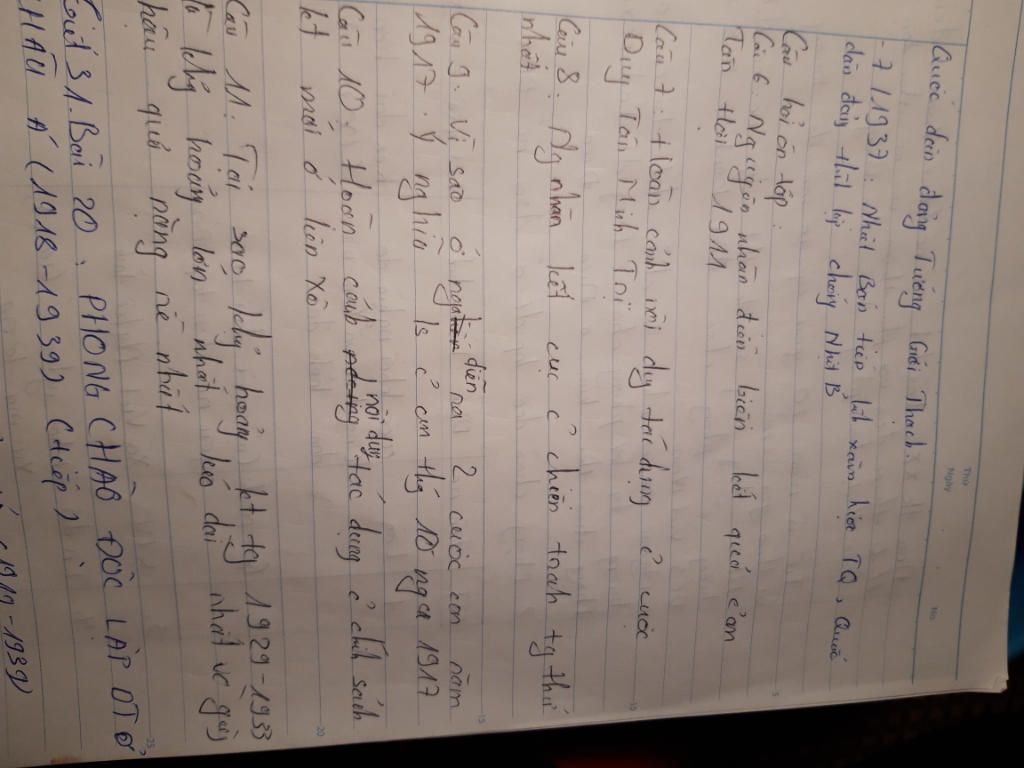 Thứ
Ngày
No.
Quốc dân đảng Tưởng Giới Thạch.
- 7/1937: Nhật Bản tiếp tục xâm lược TQ, Quốc
dân đảng + hợp chống Nhật B
Câu hỏi ôn tập:
Câu 6. Nguyên nhân diễn biến kết quả c̉ cm
Tân Hợi 1911
Câu 7. Hoàn cảnh nội dg tác dụng c̉ cuộc
Duy Tân Minh Trị
Câu 8. Ng nhân kết cục c̉ chiến tranh tg thứ
nhất
Câu 9. Vì sao ở nga diễn ra 2 cuộc cm năm
1917. Ý nghĩa ls c̉ cm thg 10 nga 1917
Câu 10. Hoàn cảnh nội dug tác dụng c̉ chính sách
kt mới ở liên xô
Câu 11. Tại sao khủng hoảng kt tg 1929-1933
là khủng hoảng lớn nhất kéo dài nhất và gây
hậu quả nặng nề nhất
Tiết 31. Bài 20. PHONG TRÀO ĐỘC LẬP DT Ở
CHÂU Á (1918-1939) (tiếp)
1919-1939)
5
10
15
20
25